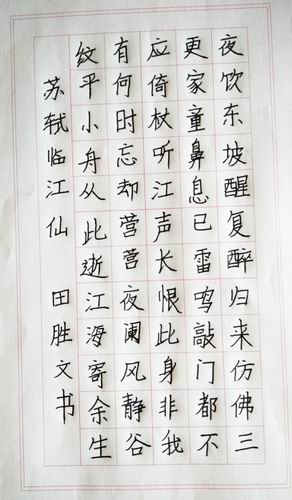 夜饮东坡醒复醉归来仿佛三
更家童鼻息已雷鸣敲门都不
应倚杖听江声长恨此身非我
有何时忘却营营夜阑风静谷
纹平小舟从此逝江海寄余生
苏轼临江仙 田胜文书